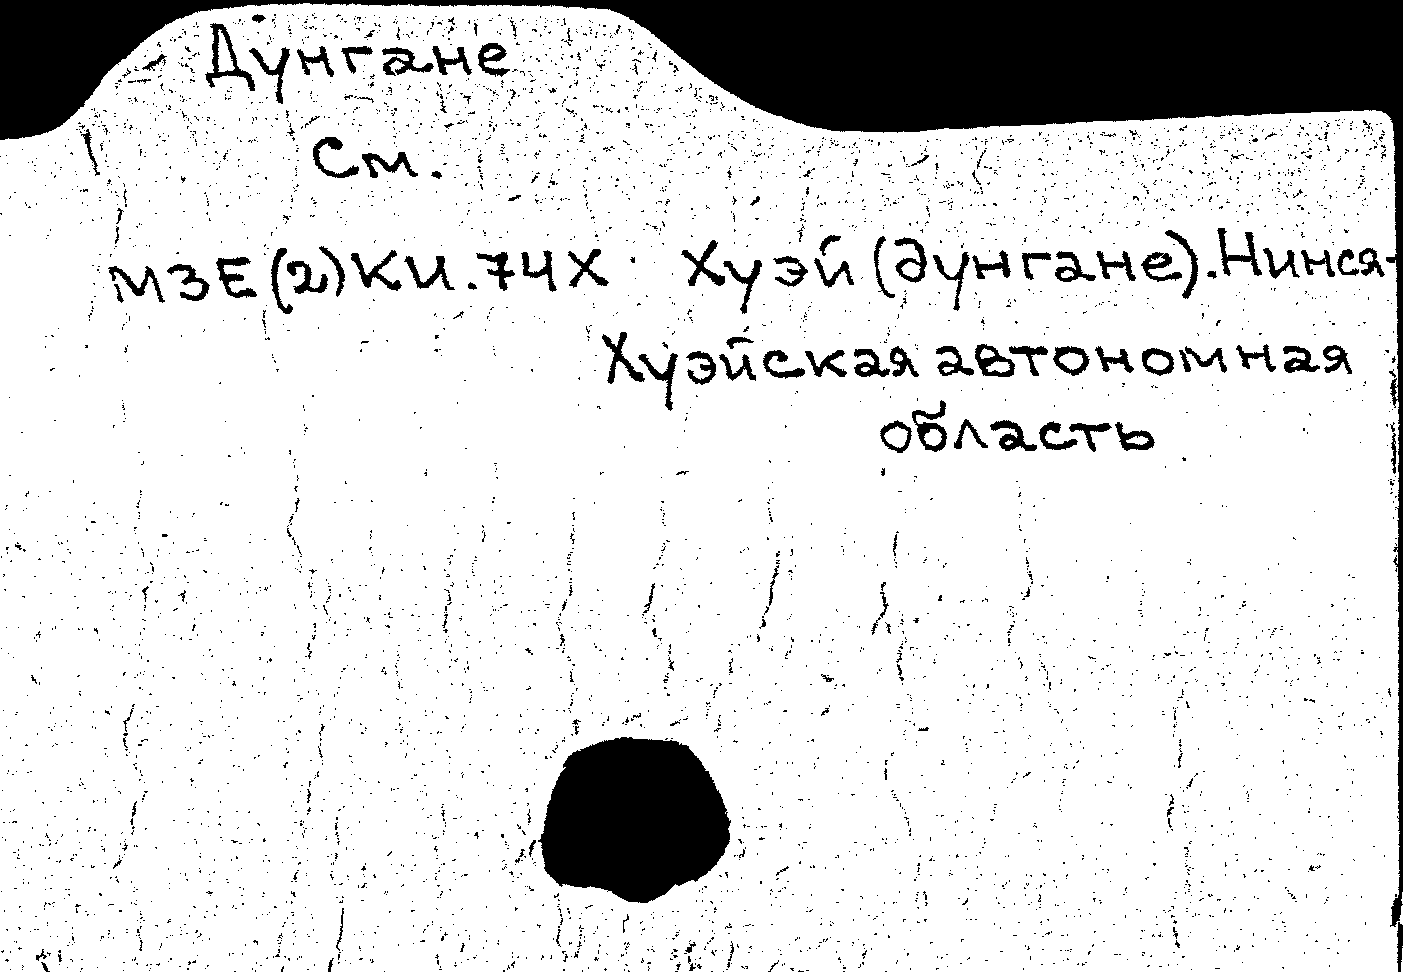 Дунгане
См.
МЗЕ(2)КИ.74Х Хуэй (дунгане). Нинся-
Хуэйская автономная
область